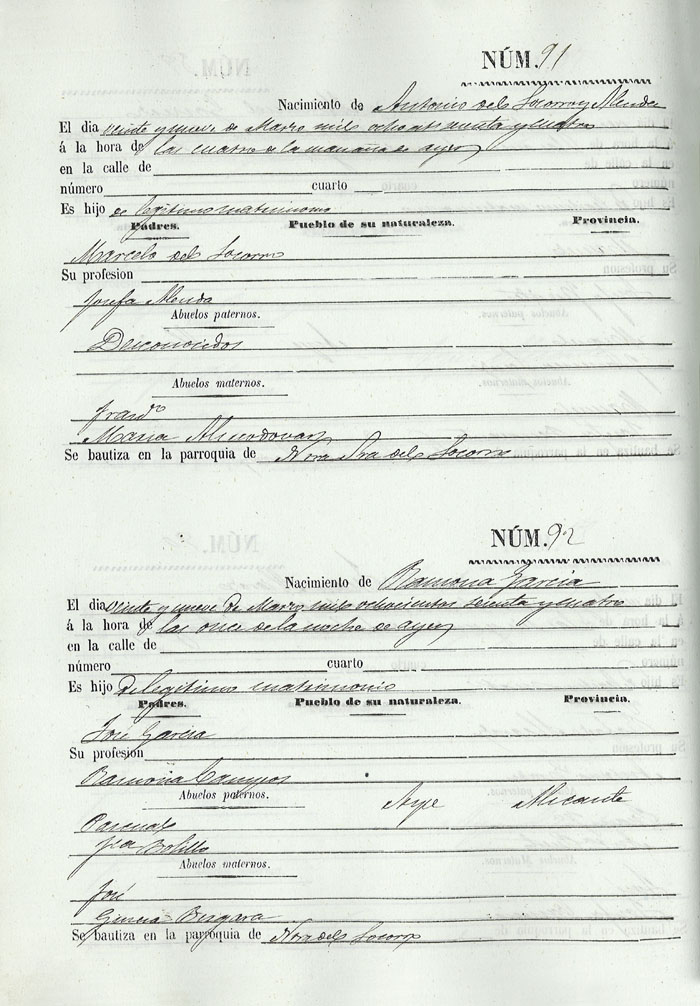 NÚM. 91
Nacimiento de Antonio del Socorro y Alenda
El dia veinte y nueve de Marzo mil ochocts setenta y cuatro
á la hora de las cuatro de la mañana de ayer
en la calle de
número cuarto
Es hijo de legitimo matrimonio
Padres. Pueblo de su naturaleza. Provincia.
Marcelo del Socorro
Su profesion
Josefa Alenda
Abuelos paternos.
Desconocidos
Abuelos maternos.
Maria Almodovar
Se bautiza en la parroquia de Ntra Sra del Socorro
NÚM. 92
Nacimiento de Ramona Garcia
El dia veinte y nueve de Marzo mil ochocientos setenta y cuatro
á la hora de las once de la noche de ayer
en la calle de
número cuarto
Es hijo de legitimo matrimonio
Padres. Pueblo de su naturaleza. Provincia.
José Garcia
Su profesion
Ramona Campos
Abuelos paternos. Aspe Alicante
Pascual
Fca Botella
Abuelos maternos.
José
Bergara
Se bautiza en la parroquia de del Socorro